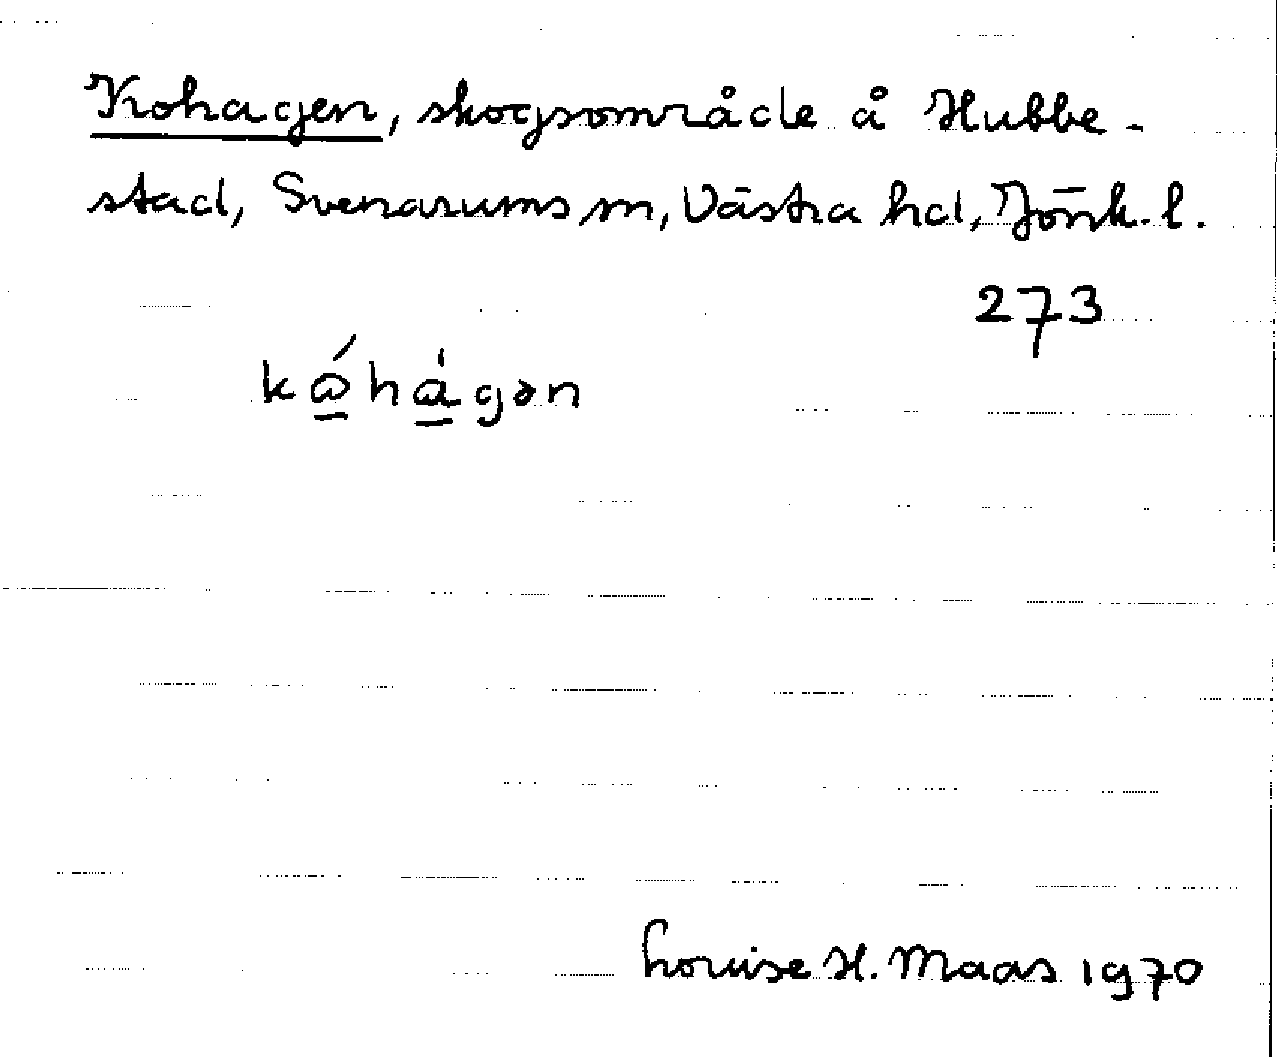 Kohagen, skogsområde å Hubbe-
stad, Svenarums sn, Västra hd, Jönk. l.
273
kóhágən
Louise H. Maas 1970